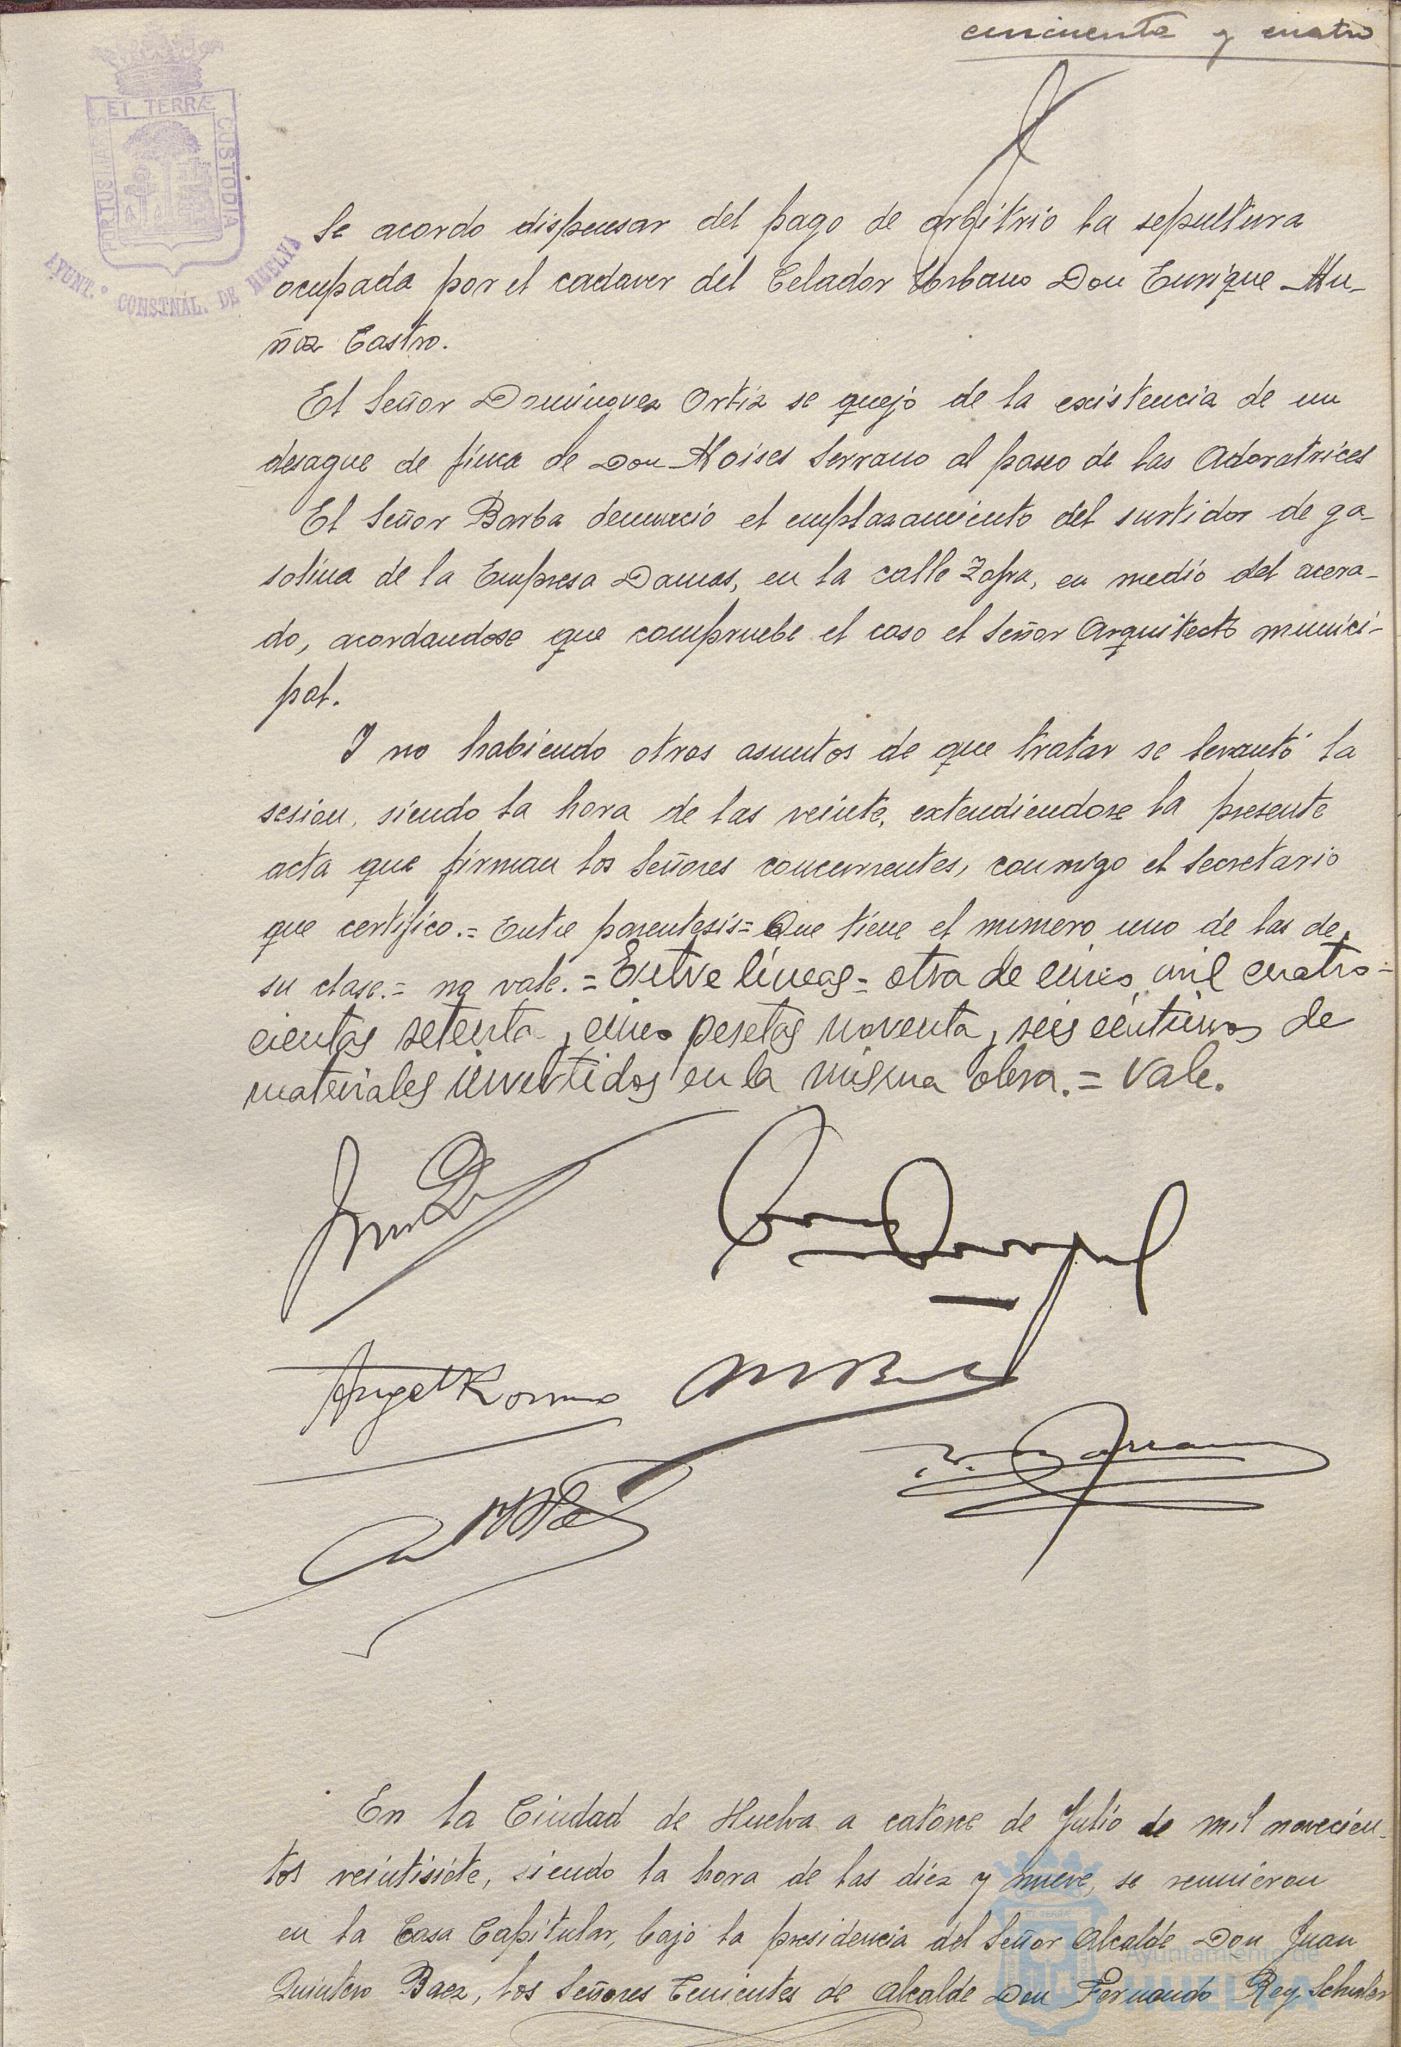 cincuenta y cuatro
PORTUS MARIS ET TERRÆ CUSTODIA
AYUNT.º CONSTNÁL. DE HUELVA
Se acordo dispensar del pago de arbitrio la sepultura
ocupada por el cadaver del Celador Urbano Don Enrique Mu-
ñoz Castro.
El Señor Dominguez Ortiz se quejó de la existencia de un
desague de finca de Don Moises Serrano al paseo de las Adoratrices
El Señor Barba denunció el emplazamiento del surtidor de ga-
solina de la Empresa Damas, en la calle Zafra, en medio del acera-
do, acordandose que compruebe el caso el Señor Arquitecto munici-
pal.
Y no habiendo otros asuntos de que tratar se levantó la
sesion, siendo la hora de las veinte, extendiendose la presente
acta que firman los Señores concurrentes, conmigo el Secretario
que certifico.= Entre parentesis= Que tiene el numero uno de las de
su clase.= no vale.= Entre líneas= otra de cinco mil cuatro-
cientas setenta y cinco pesetas noventa y seis céntimos de
materiales invertidos en la misma obra.= Vale.
Angel Romero
En la Ciudad de Huelva a catorce de Julio de mil novecien-
tos veintisiete, siendo la hora de las diez y nueve, se reunieron
en la Casa Capitular, bajo la presidencia del Señor Alcalde Don Juan
Quintero Baez, los Señores Tenientes de Alcalde Don Fernando Rey
Ayuntamiento de
HUELVA